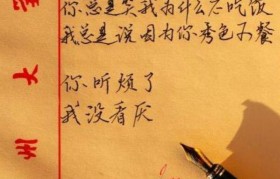 你总是笑我为什么不吃饭
我总是说因为你秀色可餐
你听烦了
我没看厌
大
州